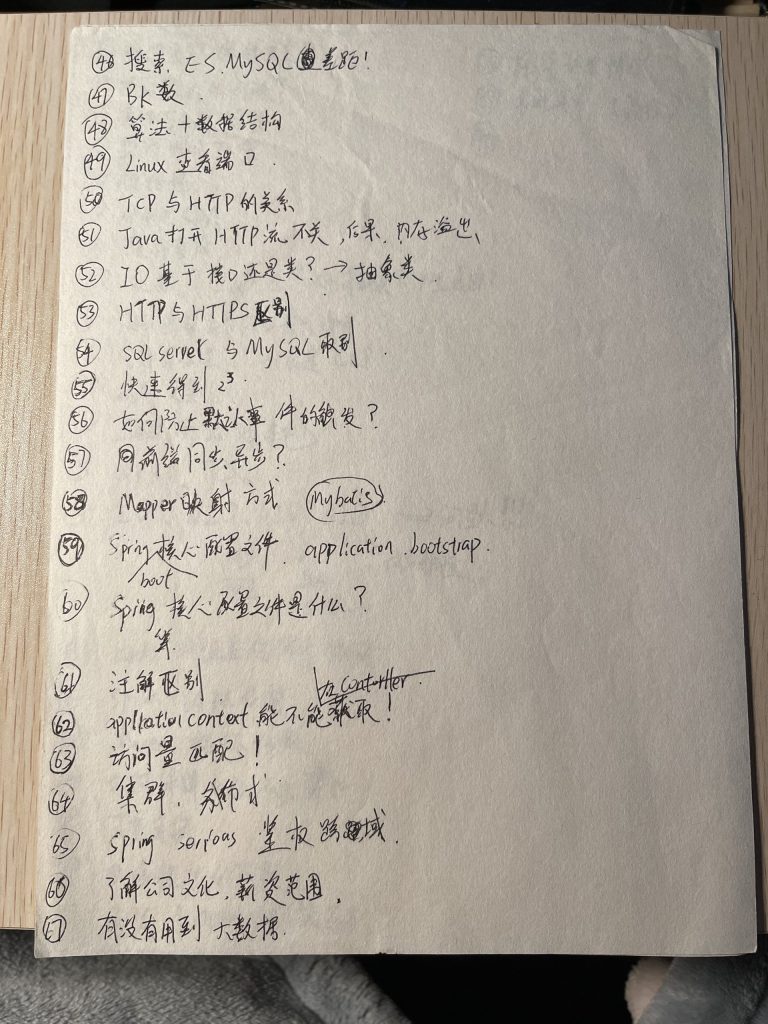 ㊻ 搜索 ES.MySQL 差距!
㊼ BK数.
㊽ 算法+数据结构
㊾ Linux 查看端口.
㊿ TCP与HTTP的关系
51 Java打开HTTP流不关,后果,内存溢出、
52 IO基于接口还是类?→抽象类.
53 HTTP与HTTPS区别
54 SQL server 与MySQL区别.
55 快速得到 2³.
56 如何防止默认事件的触发?
57 前端同步、异步?
58 Mapper映射方式 Mybatis
59 Spring 核心配置文件. application.bootstrap.
boot
60 Spring 核心配置文件是什么?
61 注解区别
在contorller.
62 application context 能不能获取!
63 访问量匹配!
64 集群.分布式
65 Spring serious 鉴权跨域.
66 了解公司文化,薪资范围.
67 有没有用到大数据.